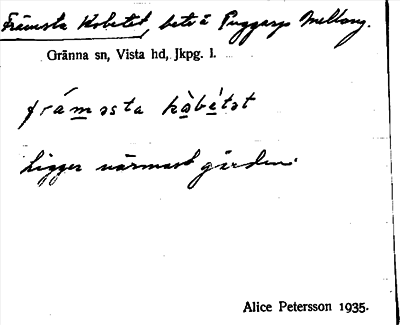 Främsta Kobetet, betn å Puggarps Mellang.
Gränna sn, Vista hd, Jkpg. l.
frámǝsta kàbétǝt
Ligger närmast gården.
Alice Petersson 1935.